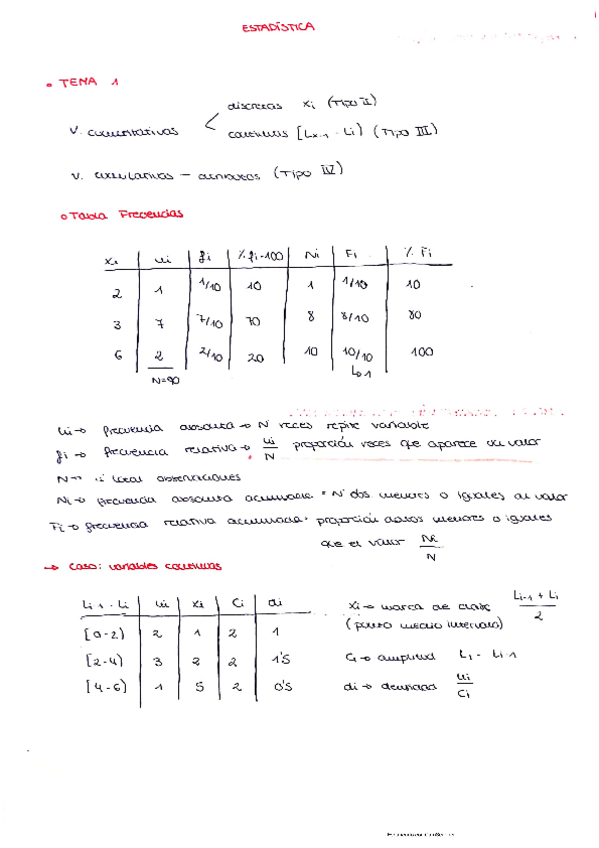 ESTADÍSTICA
• TEMA 1
discretas xi (Tipo II)
V. cuantitativas < continuas [Lx-1 - Li) (Tipo III)
V. cualitativas - atributos (Tipo IV)
o Tabla Frecuencias
xi ui fi %fi-100 Ni Fi % Fi
2 1 1/10 10 1 1/10 10
3 7 7/10 70 8 8/10 80
6 2 2/10 20 10 10/10 100
N=90 ↳ 1
ui → frecuencia absoluta → Nº veces repite variable
fi → frecuencia relativa → ui/N proporción veces que aparece un valor
N → total observaciones
Ni → frecuencia absoluta acumulada. Nº dos menores o iguales al valor
Fi → frecuencia relativa acumulada. proporción menores o iguales
que el valor Ni/N
→ Caso: variables continuas
Li-1 - Li ui xi Ci di
[0-2) 2 1 2 1
[2-4) 3 2 2 1'5
[4-6) 1 5 2 0'5
xi → marca de clase Li-1 + Li / 2
(punto medio intervalo)
Ci → amplitud Li - Li-1
di → densidad ui/Ci